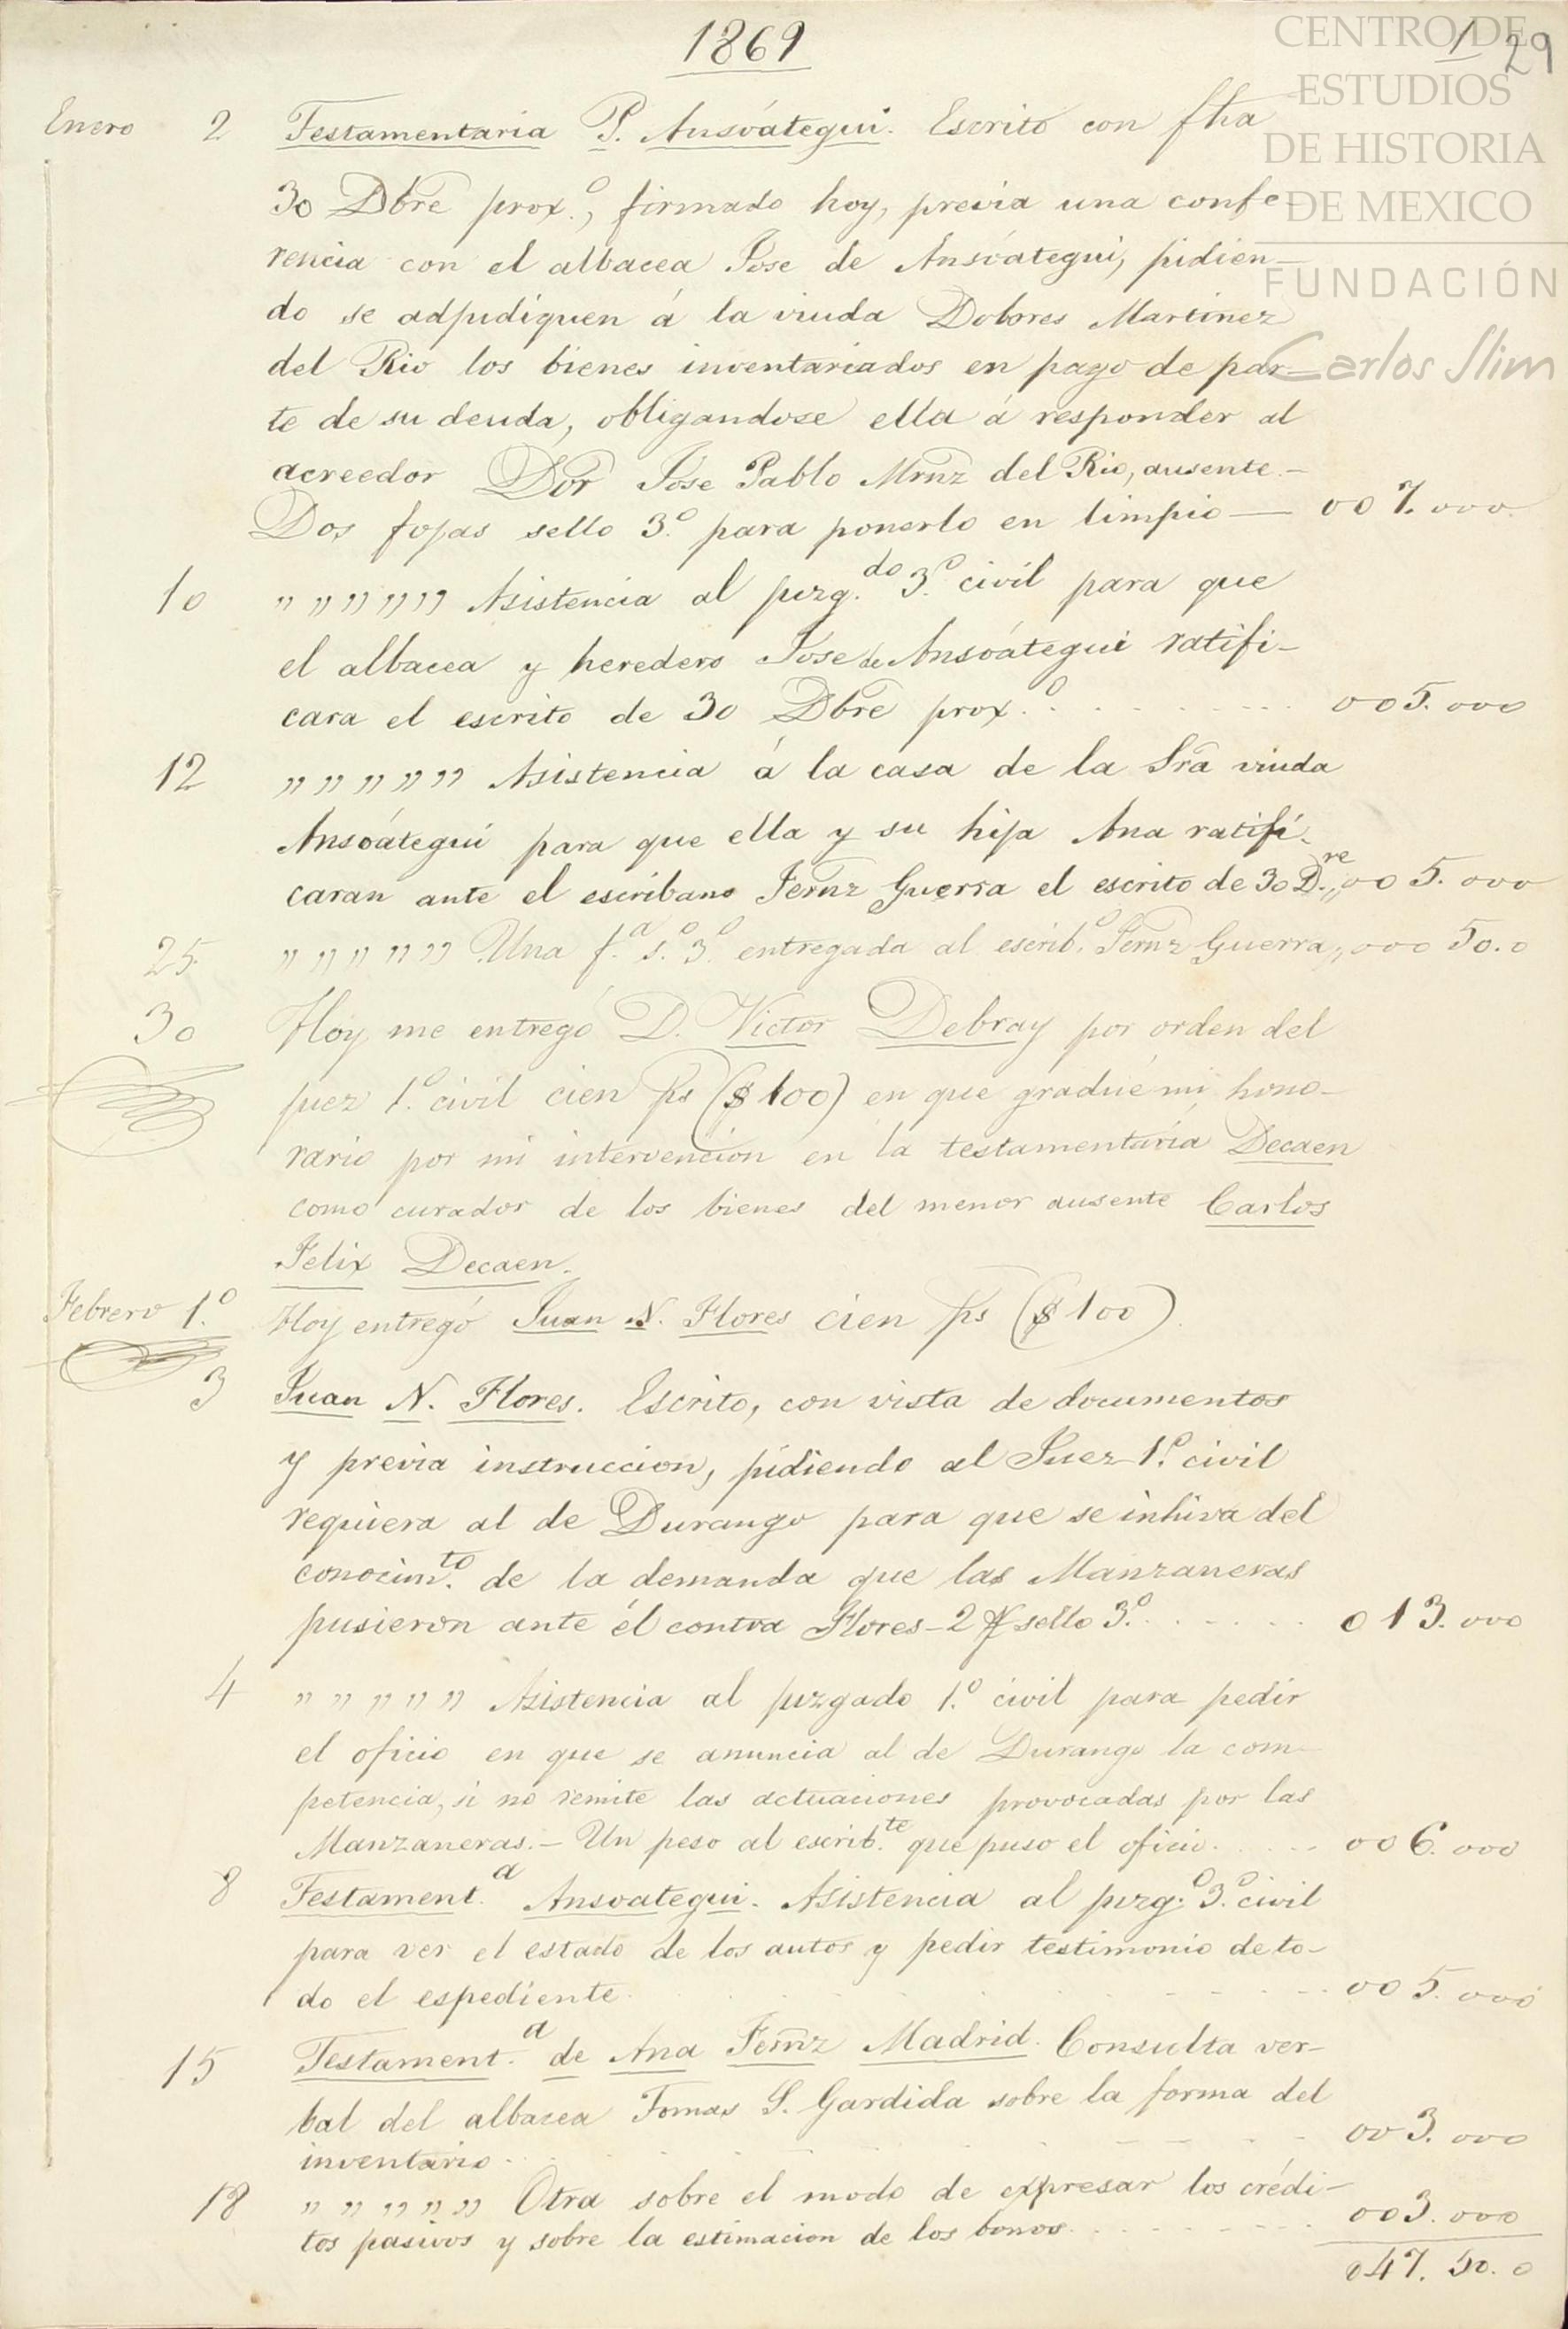 1869
1 29
CENTRO DE
ESTUDIOS
DE HISTORIA
DE MEXICO
FUNDACIÓN
Carlos Slim
Enero 2 Testamentaria P. Ansoátegui. Escrito con fha
30 Dbre prox.º, firmado hoy, previa una confe-
rencia con el albacea Jose de Ansoátegui, pidien-
do se adjudiquen á la viuda Dolores Martinez
del Rio los bienes inventariados en pago de par-
te de su deuda, obligandose ella á responder al
acreedor Dor Jose Pablo Mrnz del Rio, ausente.-
Dos fojas sello 3.º para ponerlo en limpio — 007.000
10 " " " " " Asistencia al juzg.do 3.º civil para que
el albacea y heredero Jose de Ansoátegui ratifi-
cara el escrito de 30 Dbre prox.º . . . . . . . 005.000
12 " " " " " Asistencia á la casa de la Sra viuda
Ansoátegui para que ella y su hija Ana ratifi-
caran ante el escribano Fernz Guerra el escrito de 30 D.re,, 005.000
25 " " " " " Una f.a s.º 3.º entregada al escrib.º Fernz Guerra,, 000 50.0
30 Hoy me entregó D. Victor Debray por orden del
juez 1.º civil cien ps ($100) en que gradué mi hono-
rario por mi intervencion en la testamentaría Decaen
como curador de los bienes del menor ausente Carlos
Felix Decaen.
Febrero 1.º Hoy entregó Juan N. Flores cien ps ($100).
3 Juan N. Flores. Escrito, con vista de documentos
y previa instruccion, pidiendo al Juez 1.º civil
requiera al de Durango para que se inhiva del
conocim.to de la demanda que las Manzaneras
pusieron ante él contra Flores - 2 ff sello 3.º . . . . . 013.000
4 " " " " " Asistencia al juzgado 1.º civil para pedir
el oficio en que se anuncia al de Durango la com-
petencia, si no remite las actuaciones provocadas por las
Manzaneras.- Un peso al escrib.te que puso el oficio. . . . 006.000
8 Testament.a Ansoategui. Asistencia al juzg.º 3.º civil
para ver el estado de los autos y pedir testimonio de to-
do el espediente. . . . . . . 005.000
15 Testament.a de Ana Fernz Madrid. Consulta ver-
bal del albacea Tomas S. Gardida sobre la forma del
inventario . . . . . . 003.000
18 " " " " " Otra sobre el modo de expresar los crédi-
tos pasivos y sobre la estimacion de los bonos. . . . . . 003.000
047. 50. 0